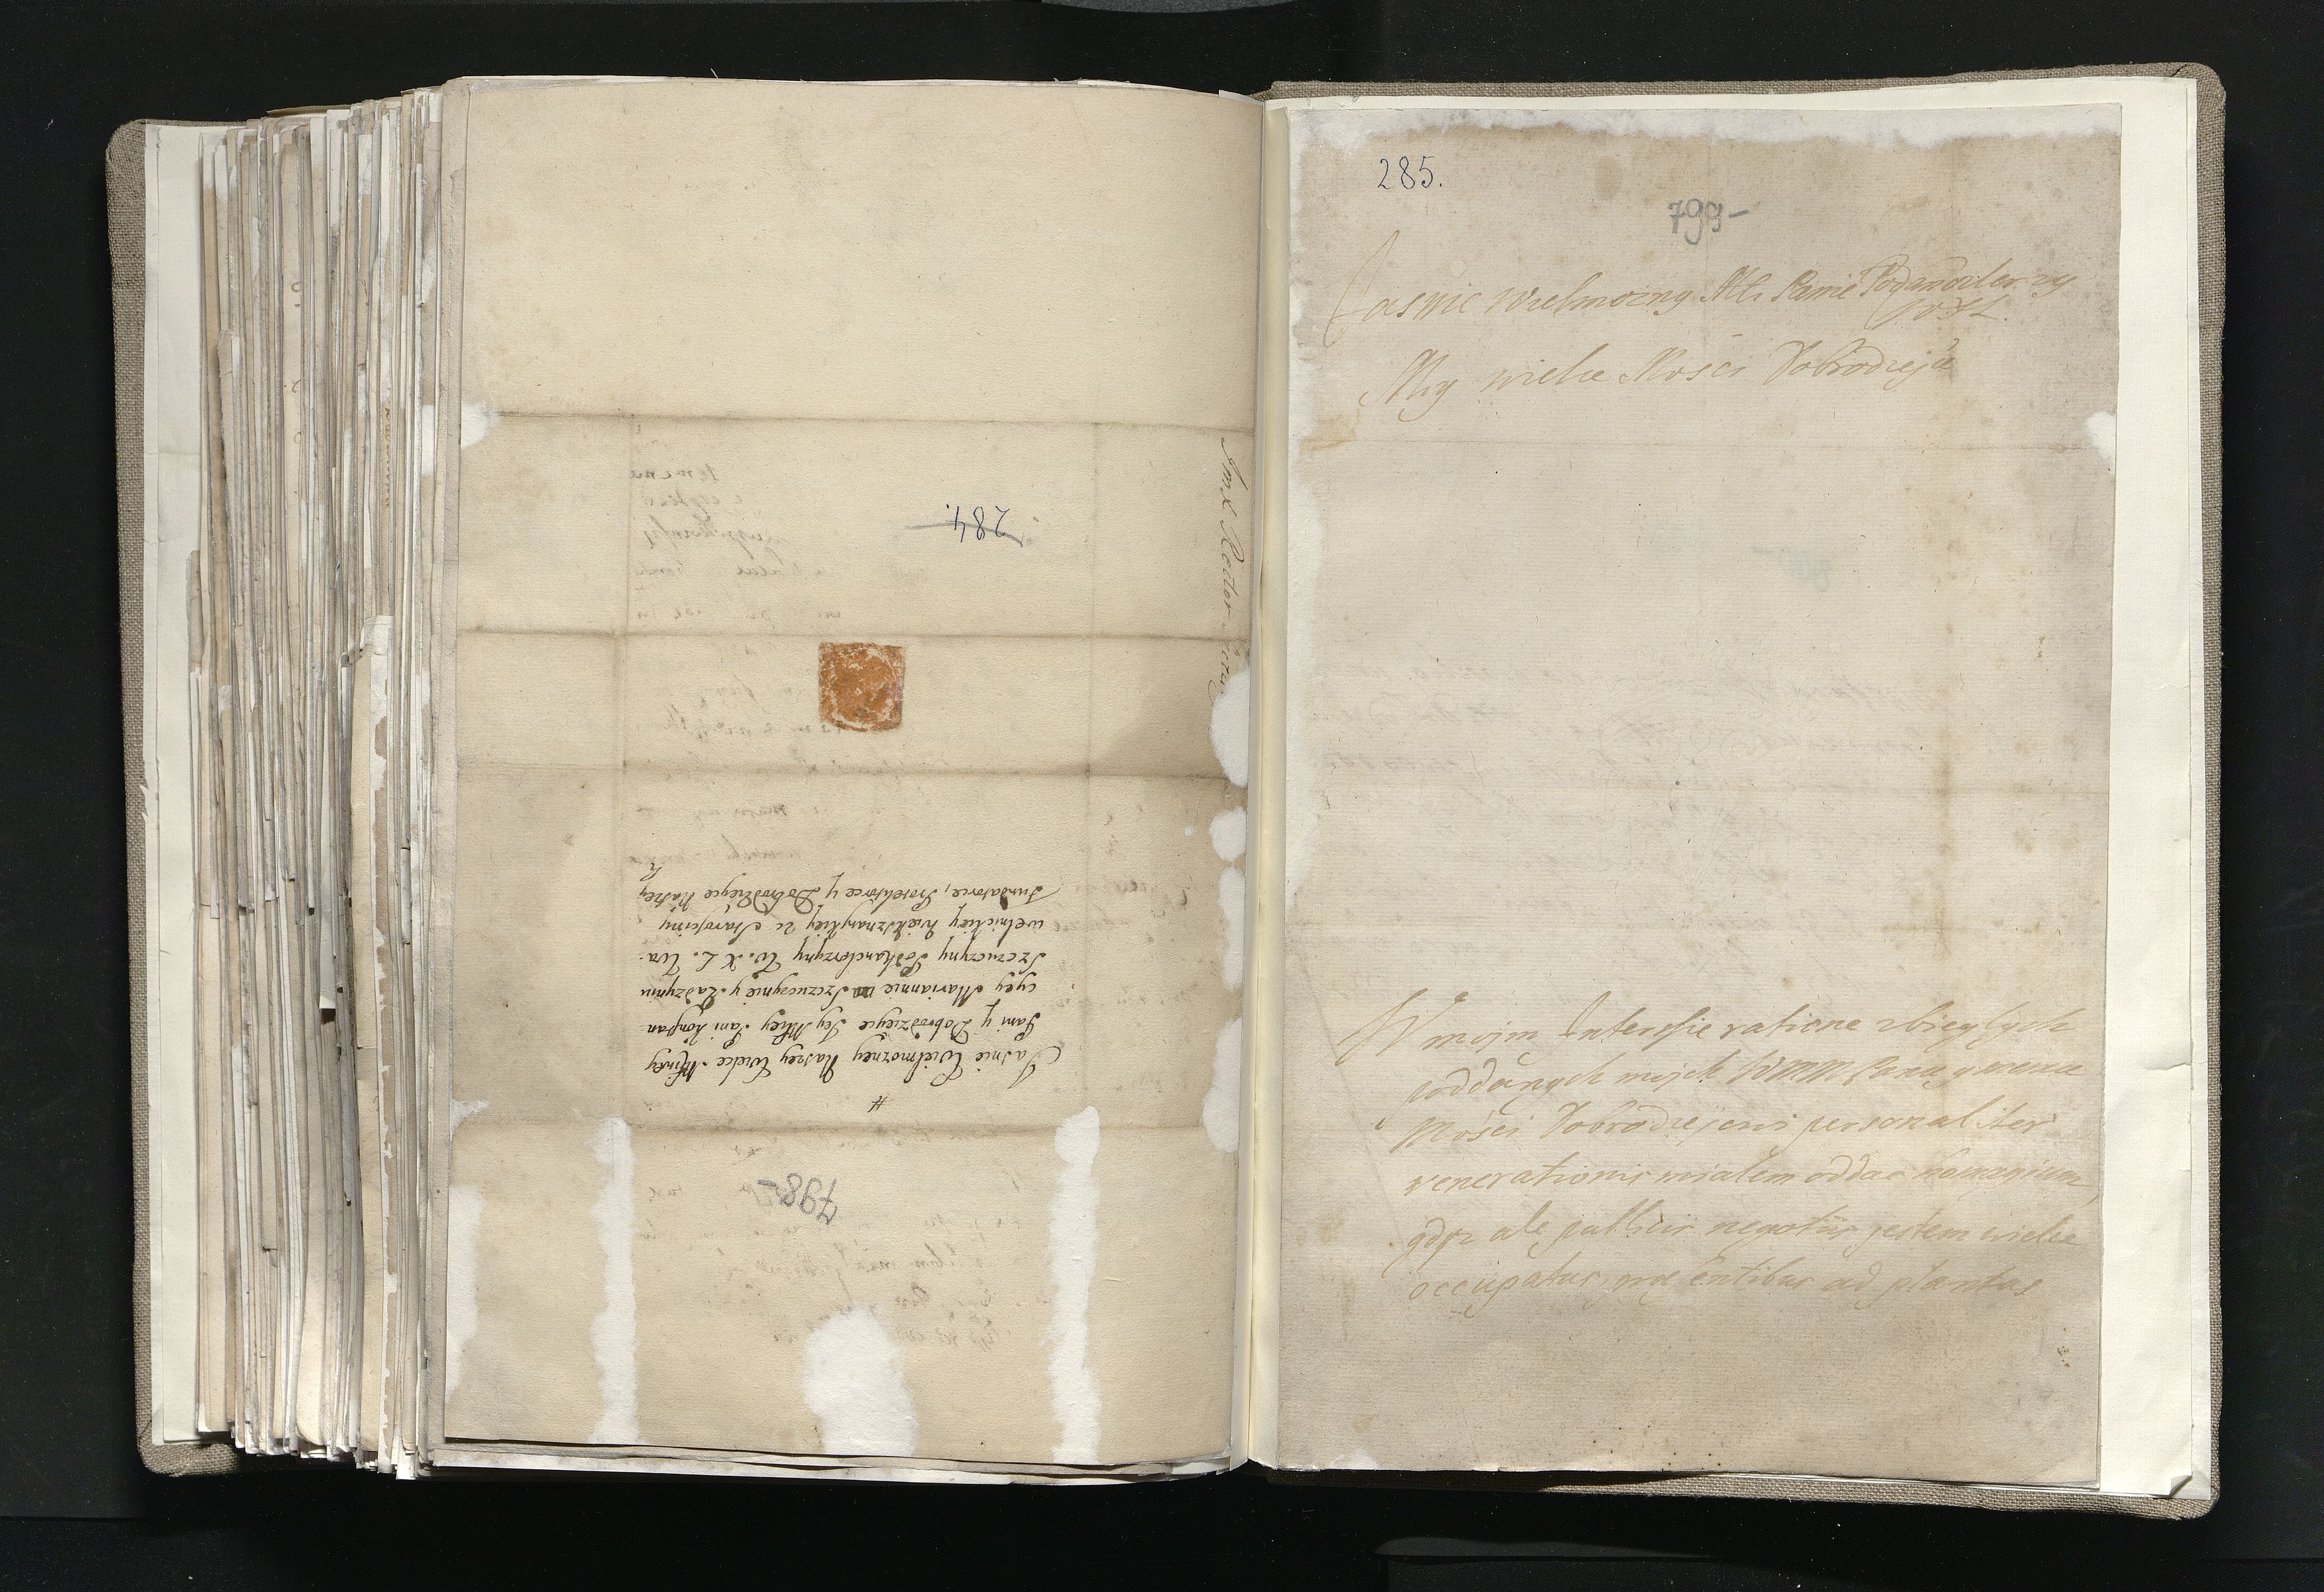 284.
Imć Rector
#
Jasnie Wielmozney Naszey Wielce Mściwey
Pani y Dobrodzieyce Jey Mhcy Pani Konstan
cyey Mariannie na Szczuczynie y Radzyniu
Szczuczyny Podkanclerzyny W. X L. Wa-
welnickiey
Fundatorce, Protektorce y Dobrodzieyce Naszey
798-
285.
799-
Jasnie Wielmozny Mci Panie Podkanclerzy
WXL.
Mny wielce Mości Dobrodzieju
W moim Interessie ratione zbiegłych
poddanych mojch WMM Panu y
Mości Dobrodziejowi personaliter
venerationis miałem oddac homagium,
gdyz ale publicis negotiis jestem wielce
occupatus, præsentibus ad plantas